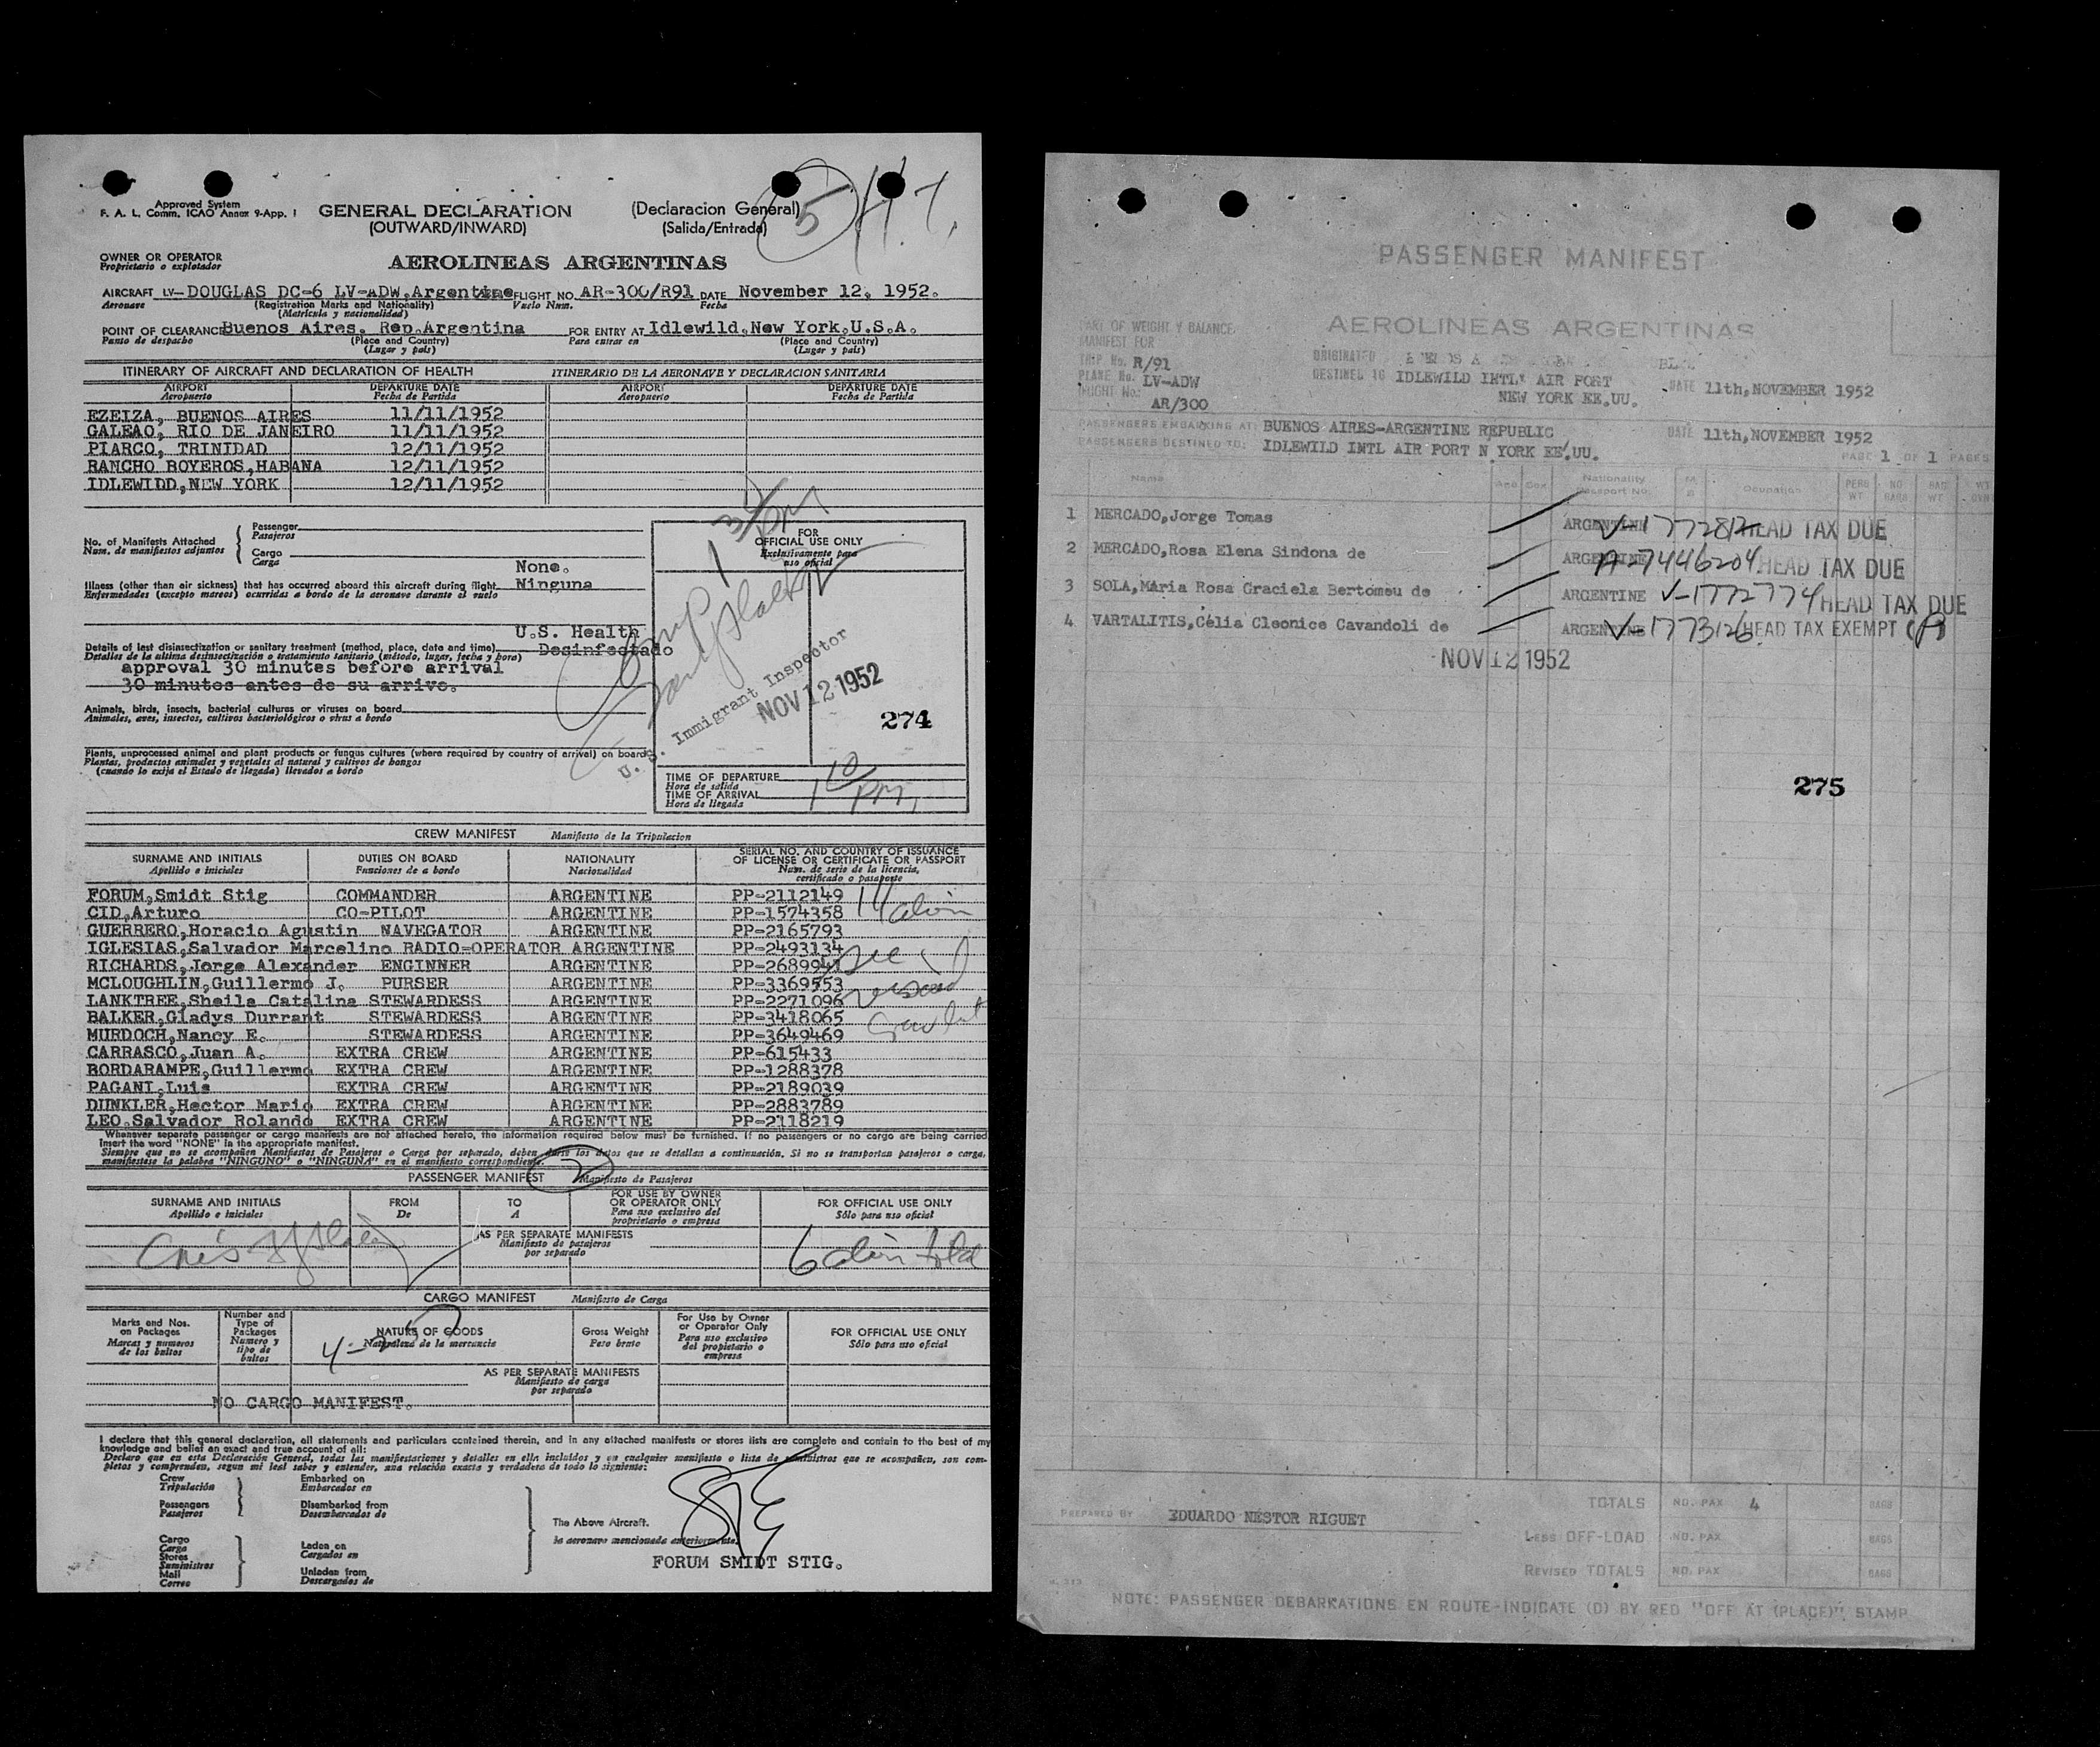 Approved System
F. A. L. Comm. ICAO Annex 9-App. I
GENERAL DECLARATION
(OUTWARD/INWARD)
(Declaracion General)
(Salida/Entrada)
5
OWNER OR OPERATOR
Proprietario o explotador
AEROLINEAS ARGENTINAS
AIRCRAFT LV- DOUGLAS DC-6 LV-ADW, Argentine FLIGHT NO. AR-300/R91 DATE November 12, 1952.
Aeronave (Registration Marks and Nationality) Vuelo Num. Fecha
(Matricula y nacionalidad)
POINT OF CLEARANCE Buenos Aires. Rep.Argentina FOR ENTRY AT Idlewild,New York,U.S.A.
Punto de despacho (Place and Country) Para entrar en (Place and Country)
(Lugar y pais) (Lugar y pais)
ITINERARY OF AIRCRAFT AND DECLARATION OF HEALTH ITINERARIO DE LA AERONAVE Y DECLARACION SANITARIA
AIRPORT DEPARTURE DATE AIRPORT DEPARTURE DATE
Aeropuerto Fecha de Partida Aeropuerto Fecha de Partida
EZEIZA, BUENOS AIRES 11/11/1952
GALEAO, RIO DE JANEIRO 11/11/1952
PIARCO, TRINIDAD 12/11/1952
RANCHO BOYEROS,HABANA 12/11/1952
IDLEWIDD,NEW YORK 12/11/1952
No. of Manifests Attached
Num. de manifiestos adjuntos
Passenger
Pasajeros
Cargo
Carga
FOR
OFFICIAL USE ONLY
Exclusivamente para
uso oficial
None.
Illness (other than air sickness) that has occurred aboard this aircraft during flight Ninguna
Enfermedades (excepto mareos) ocurridas a bordo de la aeronave durante el vuelo
U.S. Health
Details of last disinsectization or sanitary treatment (method, place, date and time) Desinfectado
Detalles de la ultima desinsectización o tratamiento sanitario (método, lugar, fecha y hora)
approval 30 minutes before arrival
30 minutos antes de su arrivo.
Animals, birds, insects, bacterial cultures or viruses on board
Animales, aves, insectos, cultivos bacteriológicos o virus a bordo
U.S. Immigrant Inspector
NOV 12 1952
274
Plants, unprocessed animal and plant products or fungus cultures (where required by country of arrival) on board
Plantas, productos animales y vegetales al natural y cultivos de hongos
(cuando lo exija el Estado de llegada) llevados a bordo
TIME OF DEPARTURE
Hora de salida
TIME OF ARRIVAL 1 10 PM
Hora de llegada
CREW MANIFEST Manifiesto de la Tripulacion
SURNAME AND INITIALS DUTIES ON BOARD NATIONALITY SERIAL NO. AND COUNTRY OF ISSUANCE
OF LICENSE OR CERTIFICATE OR PASSPORT
Apellido e iniciales Funciones de a bordo Nacionalidad Num. de serie de la licencia,
certificado o pasaporte
FORUM,Smidt Stig COMMANDER ARGENTINE PP-2112149
CID,Arturo CO-PILOT ARGENTINE PP-1574358
14 alien
GUERRERO,Horacio Agustin NAVEGATOR ARGENTINE PP-2165793
IGLESIAS,Salvador Marcelino RADIO-OPERATOR ARGENTINE PP-2493134
RICHARDS,Jorge Alexander ENGINNER ARGENTINE PP-2689941
MCLOUGHLIN,Guillermo J. PURSER ARGENTINE PP-3369553
LANKTREE,Sheila Catalina STEWARDESS ARGENTINE PP-2271096
BALKER,Gladys Durrant STEWARDESS ARGENTINE PP-3418065
MURDOCH,Nancy E. STEWARDESS ARGENTINE PP-3649469
CARRASCO,Juan A. EXTRA CREW ARGENTINE PP-615433
BORDARAMPE,Guillermo EXTRA CREW ARGENTINE PP-1288378
PAGANI,Luis EXTRA CREW ARGENTINE PP-2189039
DUNKLER,Hector Mario EXTRA CREW ARGENTINE PP-2883789
LEO,Salvador Rolando EXTRA CREW ARGENTINE PP-2118219
Whenever separate passenger or cargo manifests are not attached hereto, the information required below must be furnished. If no passengers or no cargo are being carried
insert the word "NONE" in the appropriate manifest.
Siempre que no se acompañen Manifiestos de Pasajeros o Carga por separado, deben darse los datos que se detallan a continuación. Si no se transportan pasajeros o carga,
manifiestese la palabra "NINGUNO" o "NINGUNA" en el manifiesto correspondiente.
PASSENGER MANIFEST 2 Manifiesto de Pasajeros
SURNAME AND INITIALS FROM TO FOR USE BY OWNER
OR OPERATOR ONLY FOR OFFICIAL USE ONLY
Apellido e iniciales De A Para uso exclusivo del
proprietario o empresa Sólo para uso oficial
AS PER SEPARATE MANIFESTS
Manifiesto de pasajeros
por separado
6 alien total
CARGO MANIFEST Manifiesto de Carga
Marks and Nos.
on Packages
Marcas y numeros
de los bultos
Number and
Type of
Packages
Numero y
tipo de
bultos
NATURE OF GOODS
Naturaleza de la mercancia
Gross Weight
Peso bruto
For Use by Owner
or Operator Only
Para uso exclusivo
del propietario o
empresa
FOR OFFICIAL USE ONLY
Sólo para uso oficial
AS PER SEPARATE MANIFESTS
Manifiesto de carga
por separado
NO CARGO MANIFEST.
I declare that this general declaration, all statements and particulars contained therein, and in any attached manifests or stores lists are complete and contain to the best of my
knowledge and belief an exact and true account of all:
Declaro que en esta Declaración General, todas las manifestaciones y detalles en ella incluidos y en cualquier manifiesto o lista de suministros que se acompañen, son com-
pletos y comprenden, segun mi leal saber y entender, una relación exacta y verdadera de todo lo siguiente:
Crew
Tripulación
Embarked on
Embarcados en
Passengers
Pasajeros
Disembarked from
Desembarcados de
The Above Aircraft.
la aeronave mencionada anteriormente.
Cargo
Carga
Stores
Suministros
Mail
Correo
Laden on
Cargados en
Unladen from
Descargados de
FORUM SMIDT STIG.
PASSENGER MANIFEST
AEROLINEAS ARGENTINAS
PART OF WEIGHT Y BALANCE
MANIFEST FOR
TRIP. No. R/91
PLANE No. LV-ADW
FLIGHT No. AR/300
ORIGINATED
DESTINED TO IDLEWILD INTL. AIR PORT
NEW YORK EE.UU.
DATE 11th,NOVEMBER 1952
PASSENGERS EMBARKING AT: BUENOS AIRES-ARGENTINE REPUBLIC DATE 11th,NOVEMBER 1952
PASSENGERS DESTINED TO: IDLEWILD INTL AIR PORT N YORK EE.UU. PAGE 1 OF 1 PAGES
Name Age Sex Nationality
Passport No. Ocupation PERS
WT NO
BAGS BAG
WT
1 MERCADO,Jorge Tomas ARGENTINE V-1772812 HEAD TAX DUE
2 MERCADO,Rosa Elena Sindona de ARGENTINE A-7446204 HEAD TAX DUE
3 SOLA,Maria Rosa Graciela Bertomeu de ARGENTINE V-1772774 HEAD TAX DUE
4 VARTALITIS,Celia Cleonice Cavandoli de ARGENTINE V-1773126 HEAD TAX EXEMPT
NOV 12 1952
275
PREPARED BY EDUARDO NESTOR RIGUET
TOTALS NO. PAX 4 BAGS
LESS OFF-LOAD NO. PAX BAGS
REVISED TOTALS NO. PAX BAGS
NOTE: PASSENGER DEBARKATIONS EN ROUTE-INDICATE (D) BY RED "OFF AT (PLACE)" STAMP